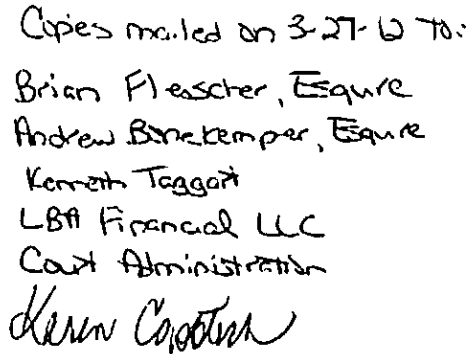 Copies mailed on 3-27-12 to:
Brian Fleischer, Esquire
Andrew Bonekemper, Esquire
Kenneth Taggart
LBA Financial LLC
Court Administration
Karen